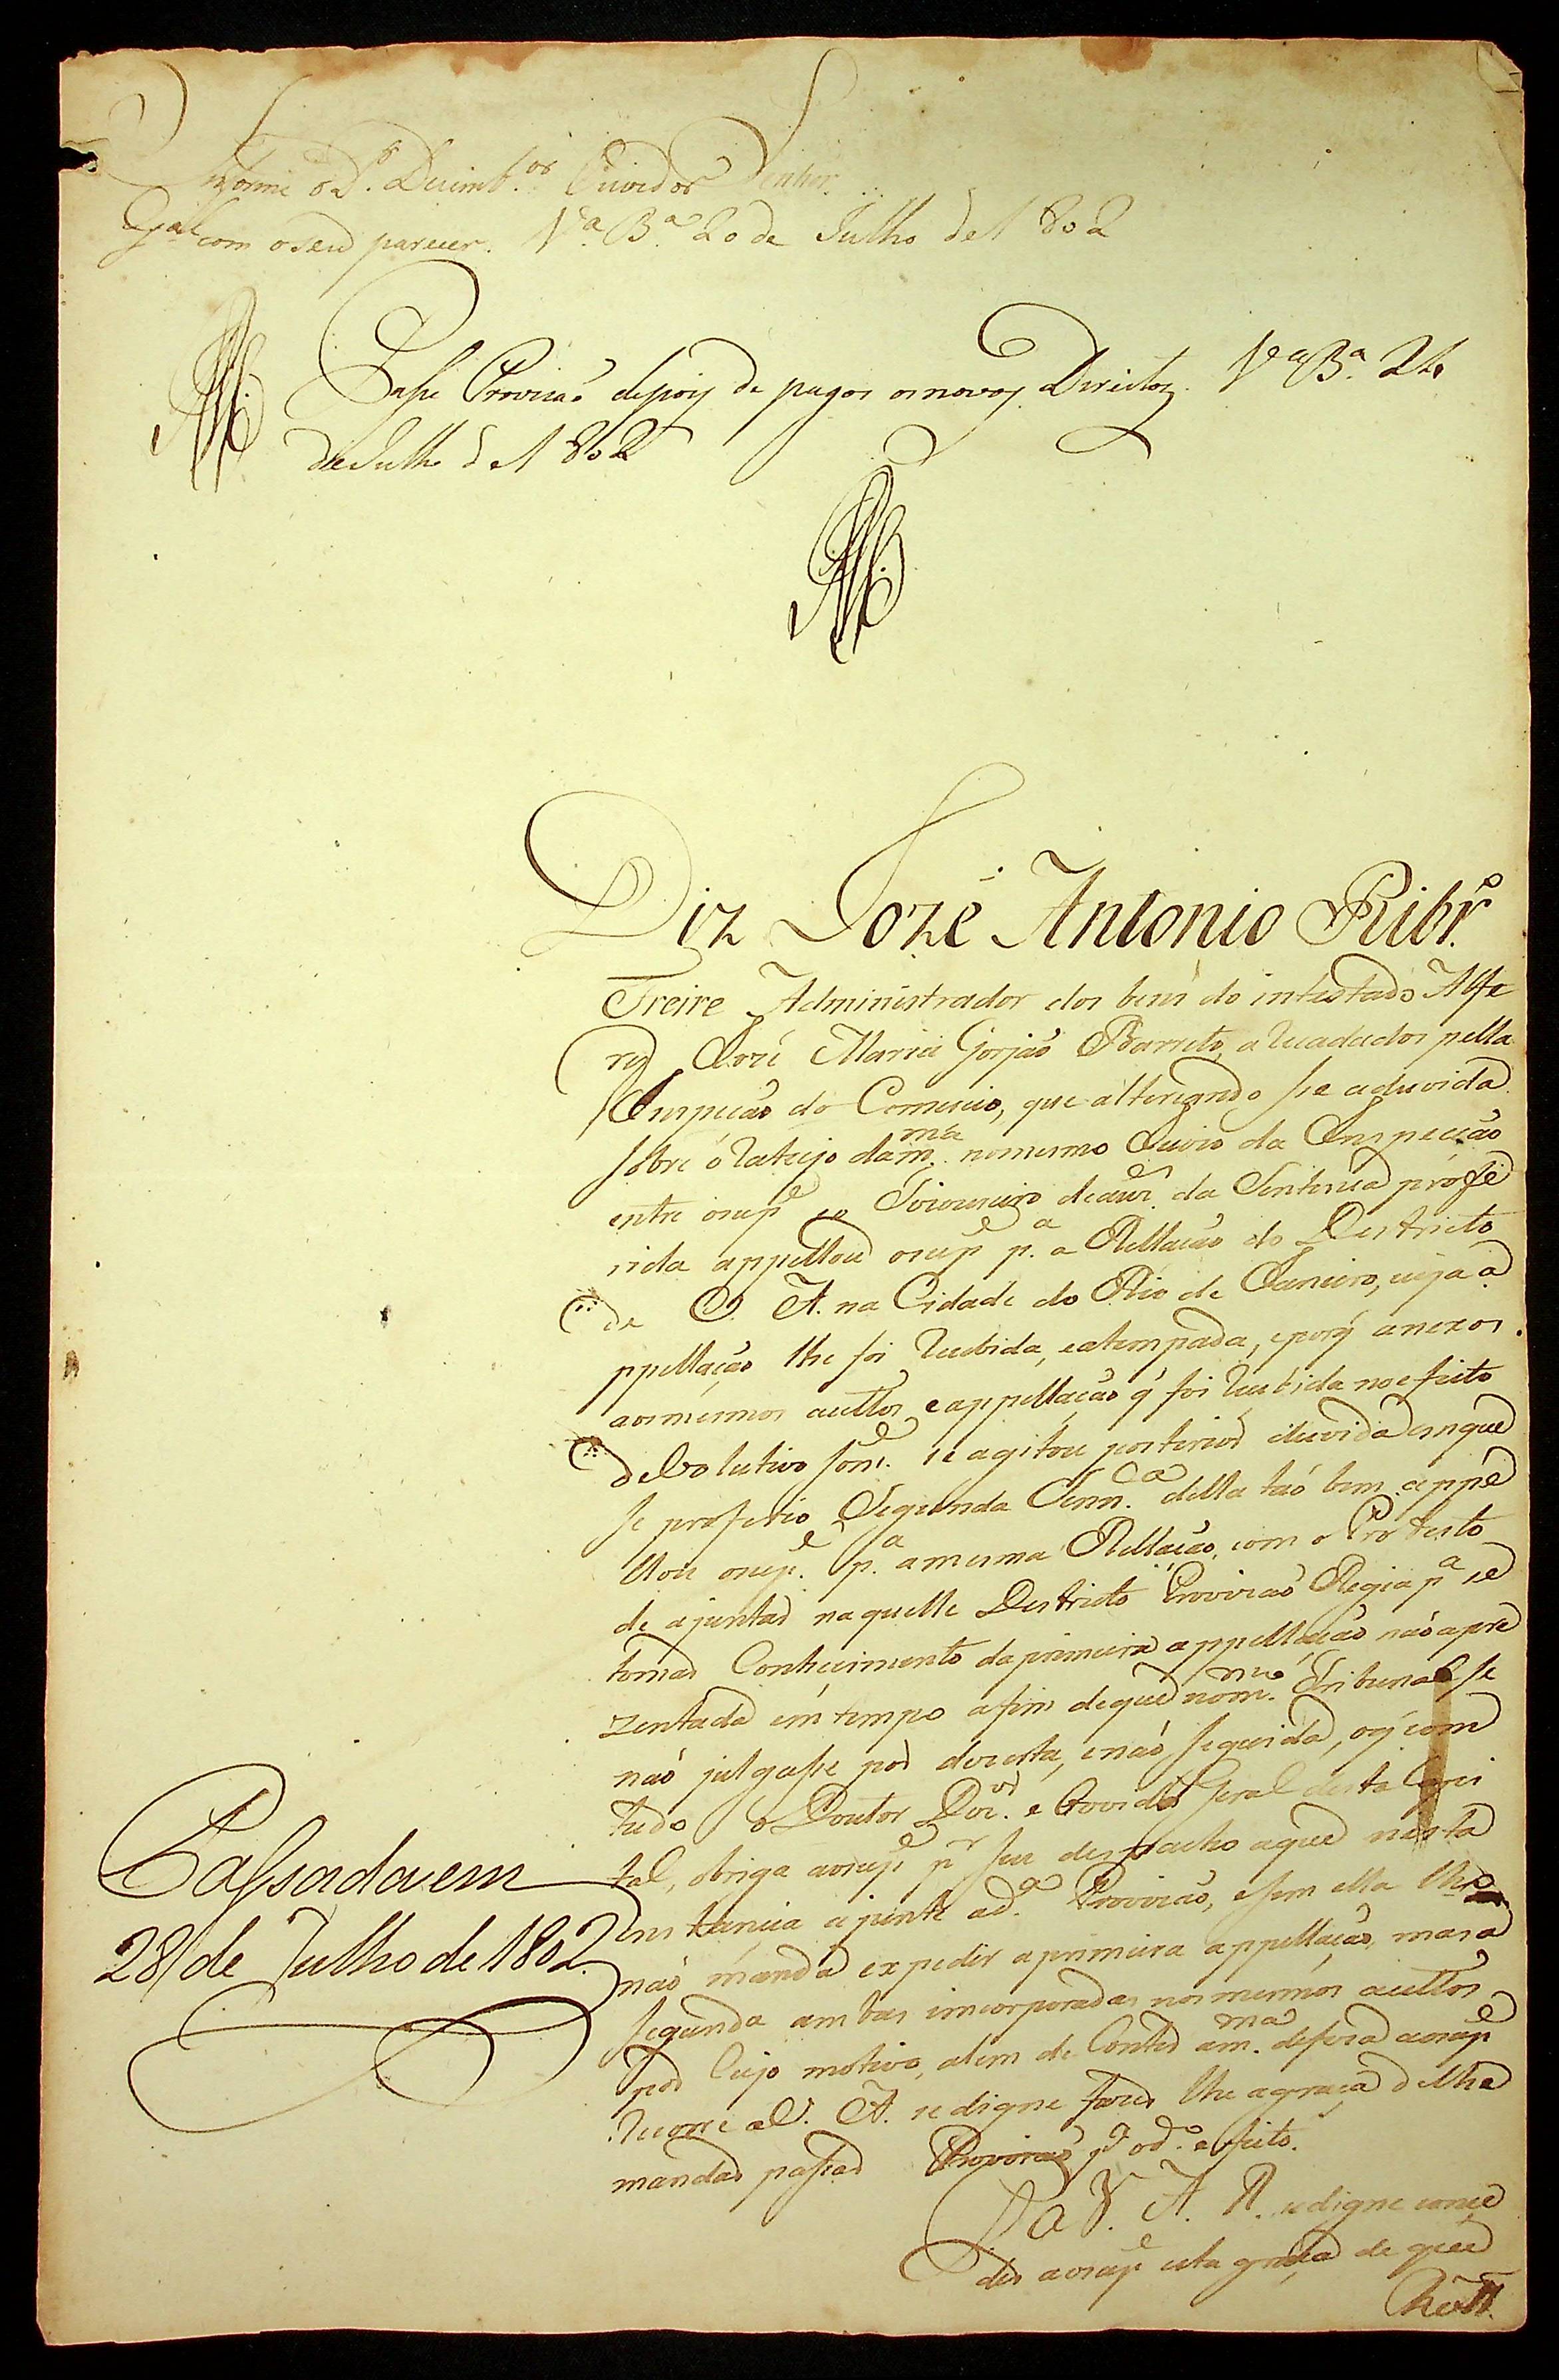 Informe o D.r Dezemb.or Ouvidor Senhor
G.al com o seu parecer. V.a B.a 20 de Julho de 1802
Passe Provizaõ depois de pagos os novos Direitos. V.a B.a 24
de Julho de 1802
Diz Jozé Antonio Ribr.o
Freire Administrador dos bens do intestado Alfe
res José Maria Gorjaõ Barreto, arecadados pella
Inspecaõ do Comercio, que altercando se aduvida
sobre o rateijo dam.ma nomesmo Juizo da Inspecçaõ
entre osup.e eo Tizoureiro deauz.es da Sentença profe
rida appellou osup.e p.a a Rellacaõ do Destricto
de V. A. na Cidade do Rio de Janeiro, cuja a
ppellaçaõ lhe foi recebida, eatempada, eporq̃ anexos
aosmesmos auttos, eappellaçaõ q̃ foi recebida noefeito
devolutivo som.e se agitou posterior duvida emque
se proferio Segunda Senn.ca della taõ bem appe
llou osup.e p.a amesma Rellaçaõ, com o Protesto
de ajuntar naquelle Destricto Provizaõ Regia p.a se
tomar Conhecimento daprimeira appellaçaõ naõ apre
zentada em tempo afim deque nom.mo Tribunal se
naõ julgasse por dezerta, enaõ seguida, oq̃ com
tudo o Doutor Dez.or e Ouvidor Geral desta Capi
tal, obriga aosup.e p.r seu despacho aque nesta
Instancia ajunte ad.a Provizaõ, esem ella lhe
naõ manda expedir aprimeira appellaçaõ, mas a
segunda ambas imcorporadas nosmesmos auttos
por Cujo motivo, alem de Conter am.ma defeza aosup.e
recorre aV. A. se digne fazer lhe agraça delhe
mandar passar Provizaõ p.a od.o efeito.
P. a V. A. R. sedigne conce
der aosup.e esta graça de que
E R M.
Passada em
28 de Julho de 1802